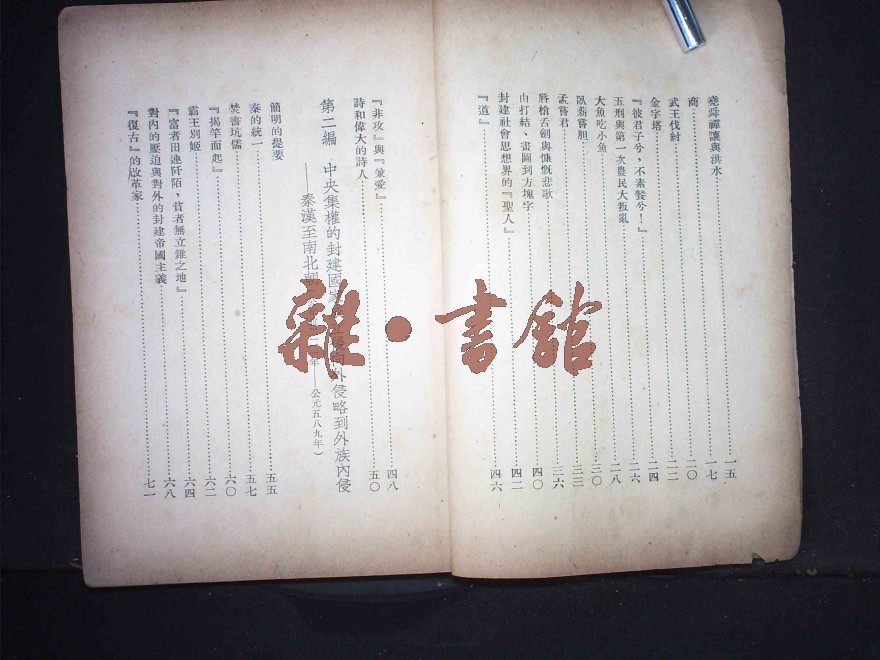 堯舜禪讓與洪水……一五
商……一七
武王伐紂……二〇
金字塔……二二
『彼君子兮，不素餐兮！』……二四
五刑與第一次農民大叛亂……二八
大魚吃小魚……三〇
臥薪嘗胆……三三
孟嘗君……三六
唇槍舌劍與慷慨悲歌……四〇
由打結、畫圖到方塊字……四二
封建社會思想界的『聖人』
『道』……四六
『非攻』與『兼愛』……四八
詩和偉大的詩人……五〇
第二編 中央集權的封建國家 外侵略到外族內侵
——秦漢至南北朝 年——公元五八九年）
簡明的提要……五五
秦的統一……五七
焚書坑儒……六〇
『揭竿而起』……六二
霸王別姬……六四
『富者田連阡陌，貧者無立錐之地』……六八
對內的壓迫與對外的封建帝國主義
『復古』的改革家……七一
雜·書館